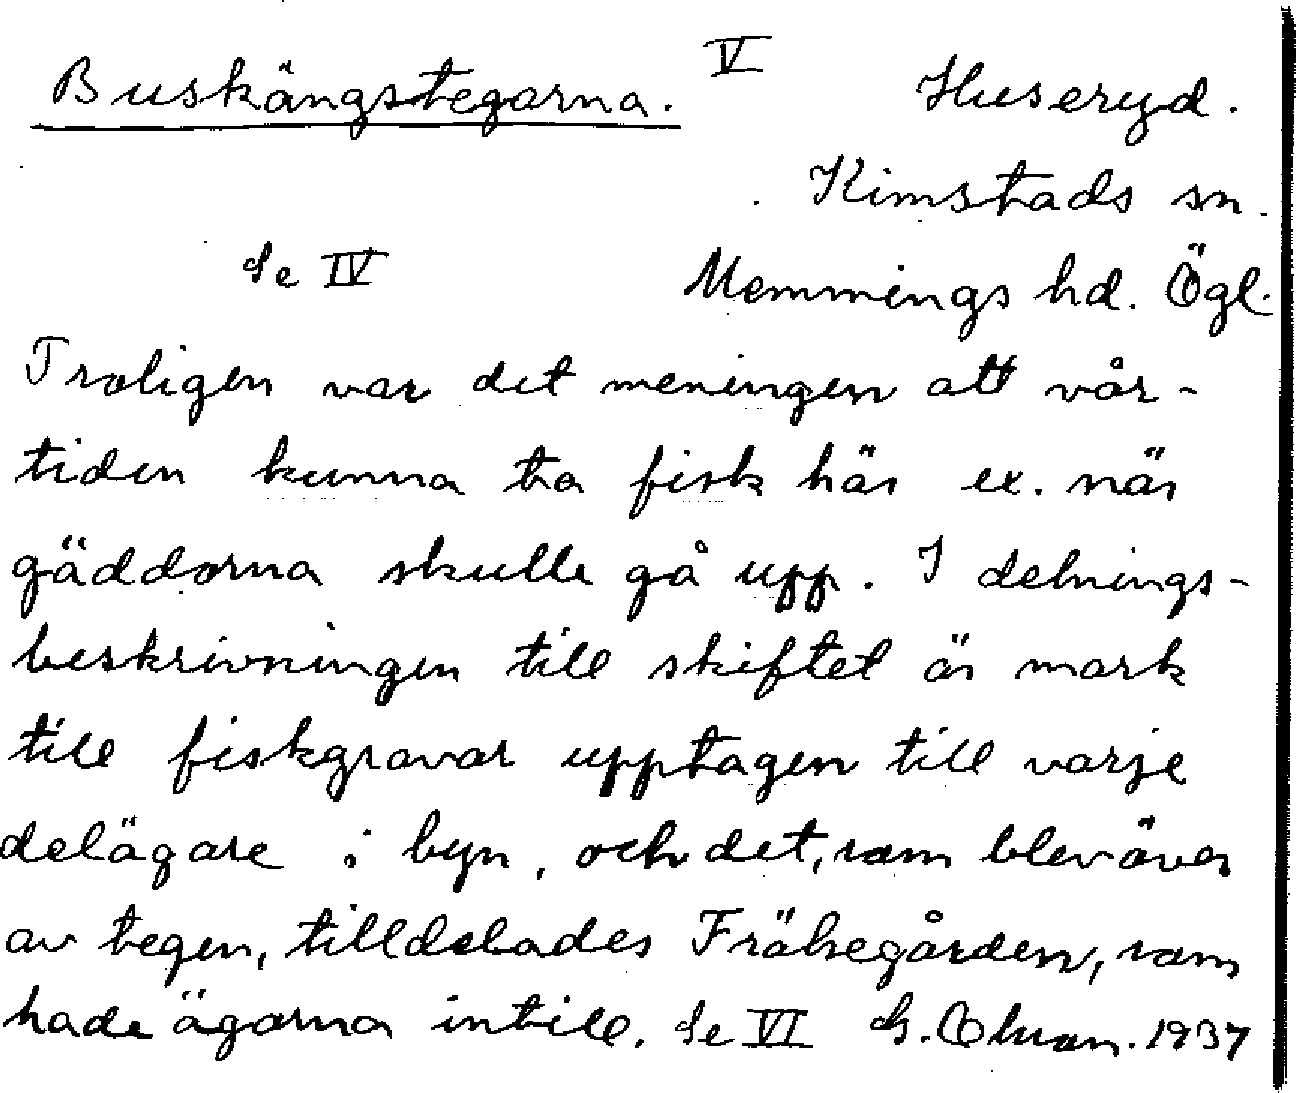 Buskängstegarna. V Huseryd.
Kimstads sn.
Se IV Memmings hd. Ögl.
Troligen var det meningen att vår-
tiden kunna ta fisk här ex. när
gäddorna skulle gå upp. I delnings-
beskrivningen till skiftet är mark
till fiskgravar upptagen till varje
delägare i byn, och det, som blev över
av tegen, tilldelades Frälsegården, som
hade ägorna intill. Se VI 1937